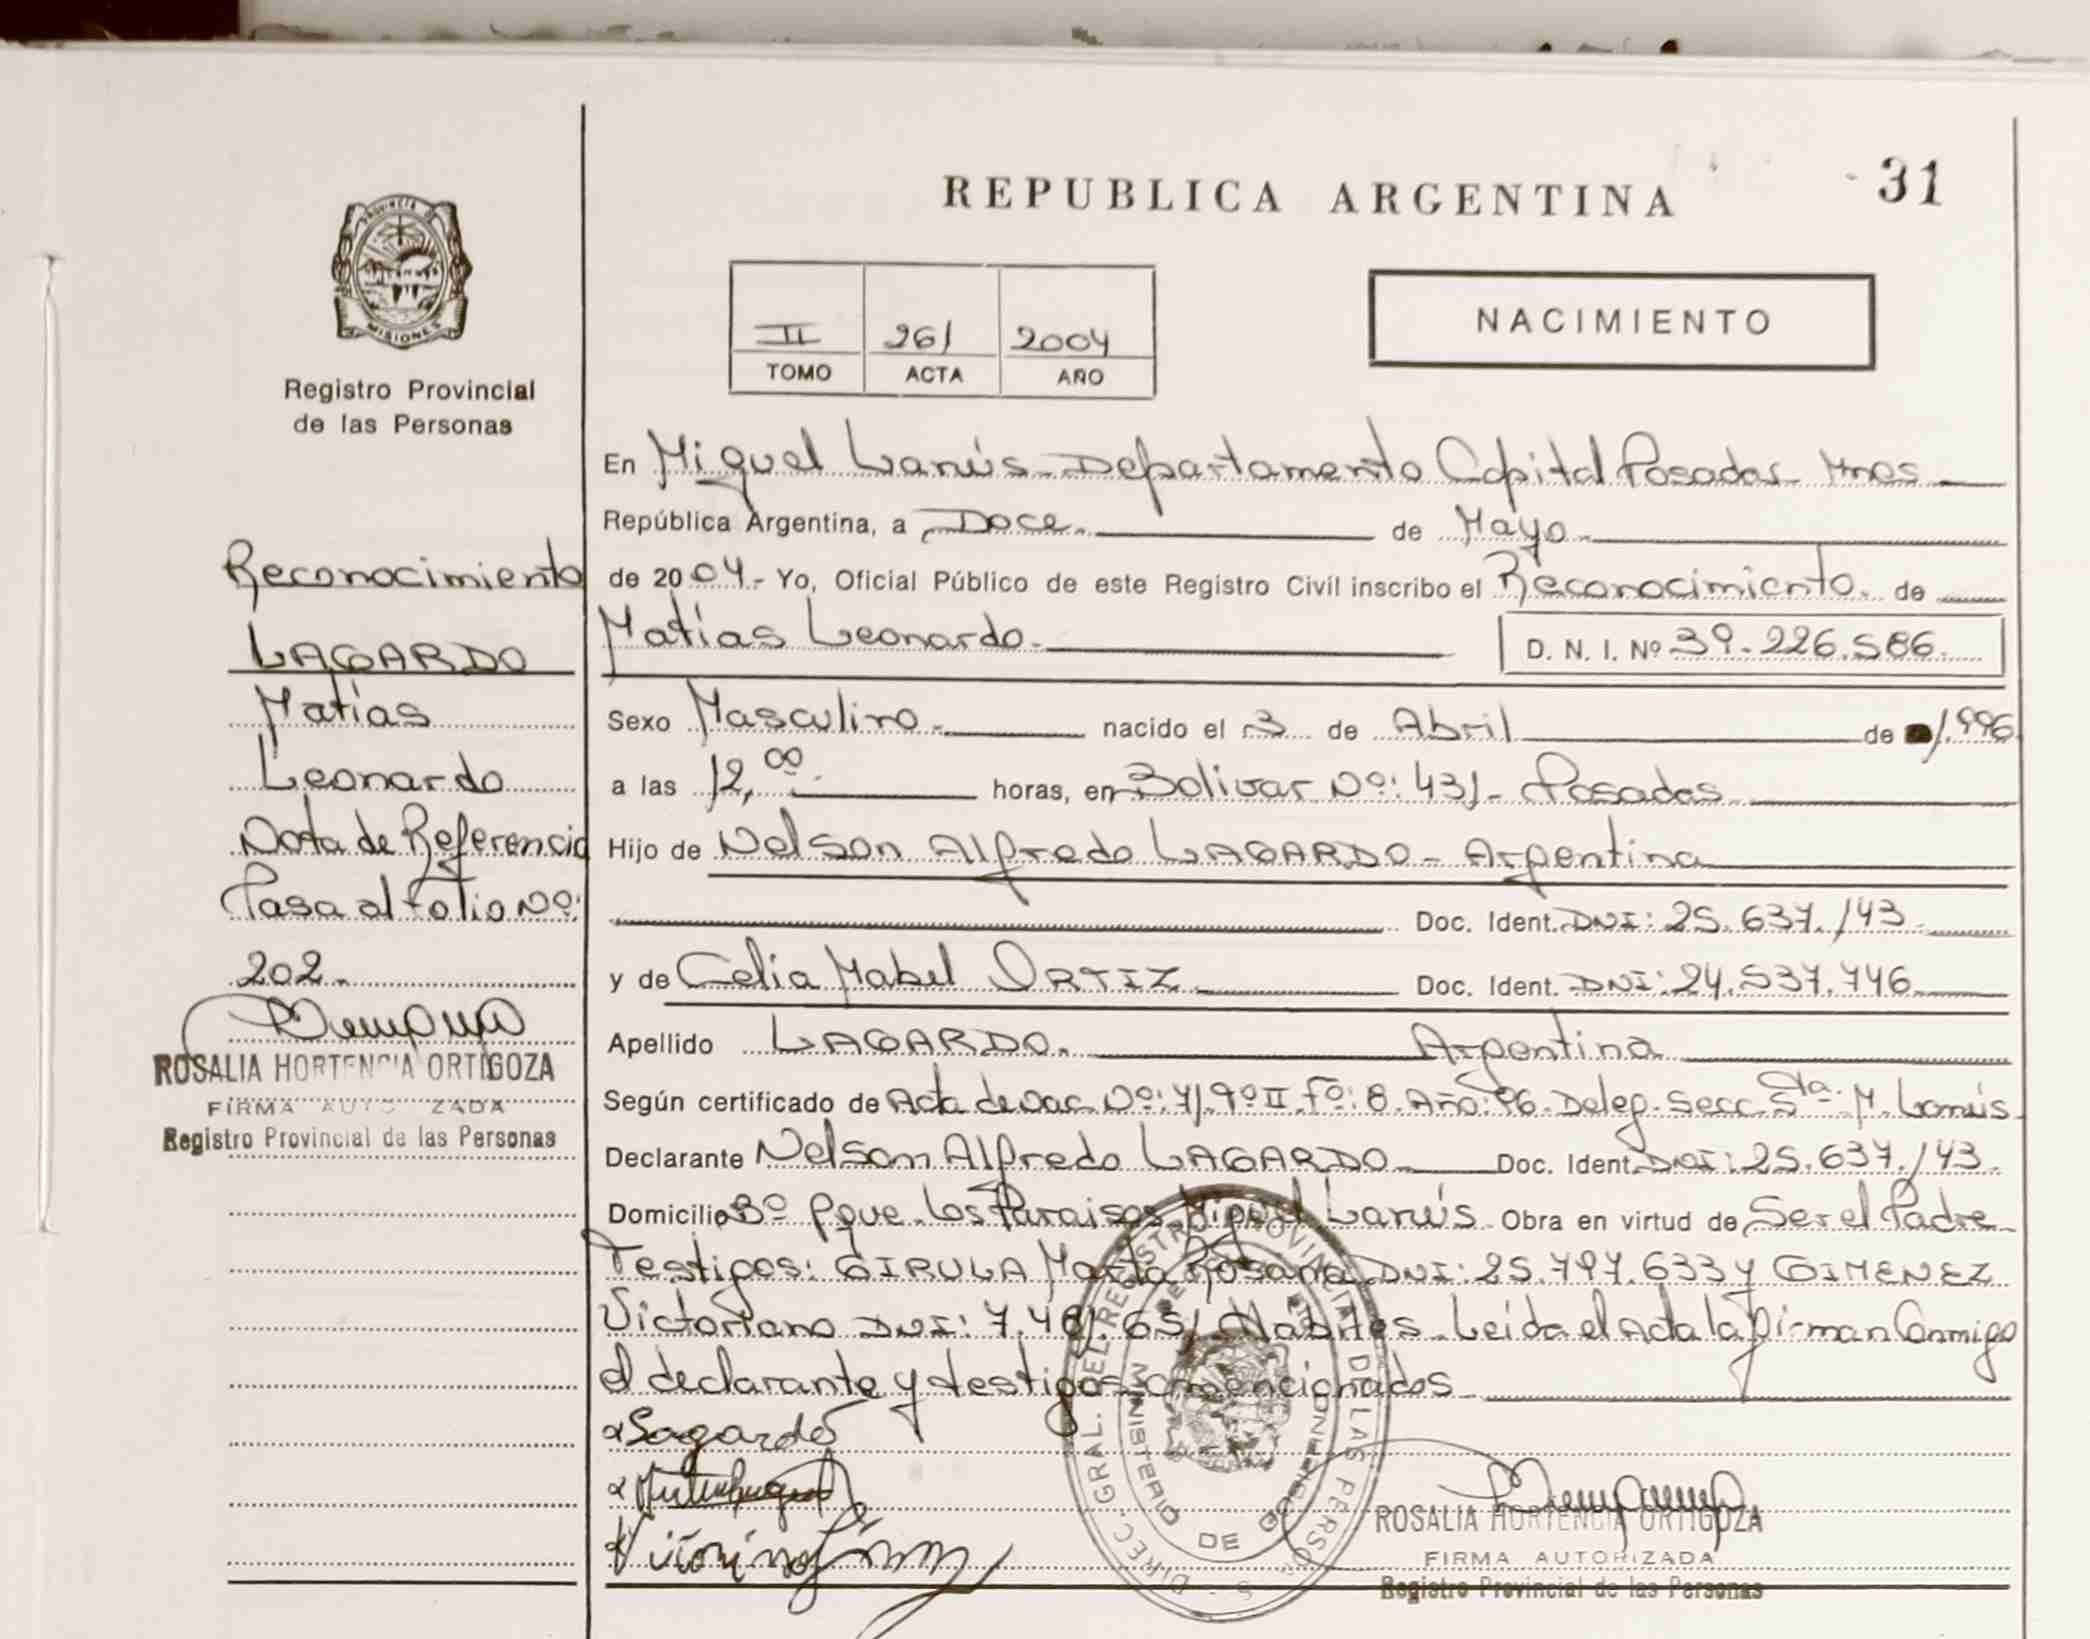 REPUBLICA ARGENTINA
31
PROVINCIA DE
MISIONES
Registro Provincial
de las Personas
II 261 2004
TOMO ACTA AÑO
NACIMIENTO
Reconocimiento
LAGARDO
Matías
Leonardo
Nota de Referencia
Pasa al Folio Nº:
202.
ROSALIA HORTENCIA ORTIGOZA
FIRMA AUTORIZADA
Registro Provincial de las Personas
En Miguel Lanús - Departamento Capital Posadas - Mnes
República Argentina, a Doce. de Mayo
de 2004.- Yo, Oficial Público de este Registro Civil inscribo el Reconocimiento. de
Matías Leonardo. D. N. I. Nº 39.226.586.
Sexo Masculino. nacido el 3 de Abril de 1.996
a las 12,00. horas, en Bolivar Nº: 431 - Posadas
Hijo de Nelson Alfredo LAGARDO - Argentina
Doc. Ident. DNI: 25.637.143
y de Celia Mabel ORTIZ Doc. Ident. DNI: 24.537.746
Apellido LAGARDO. Argentina
Según certificado de Acta de Nac. Nº: 41 Tº II Fº: 8. Año: 96. Deleg. Secc. 5ta. M. Lanús
Declarante Nelson Alfredo LAGARDO Doc. Ident. DNI: 25.637.143
Domicilio Bº Pque. Los Paraisos - Miguel Lanús Obra en virtud de Ser el Padre
Testigos: GIRULA Marta Rosana DNI: 25.797.633 y GIMENEZ
Victoriano DNI: 7.481.651 Habiles. Leída el Acta la firman Conmigo
el declarante y testigos mencionados
Lagardo
DIREC. GRAL. DEL REGISTRO PROVINCIAL DE LAS PERSONAS
MINISTERIO DE GOBIERNO
ROSALIA HORTENCIA ORTIGOZA
FIRMA AUTORIZADA
Registro Provincial de las Personas